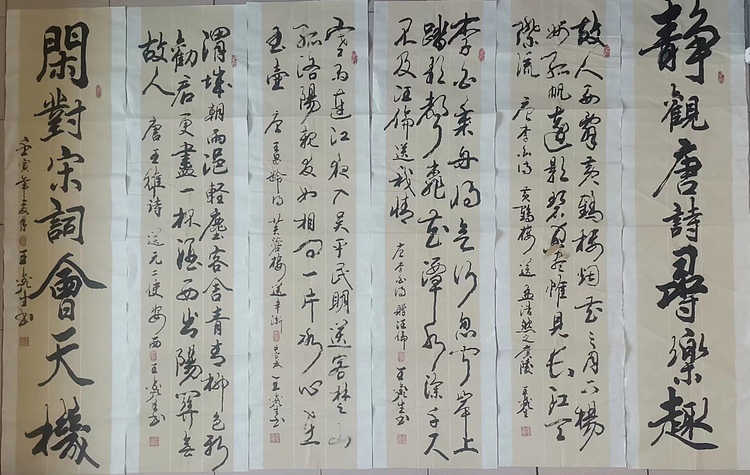 静觀唐詩尋樂趣
故人西辭黄鶴樓烟花三月下揚
州孤帆遠影碧空盡惟見長江天
際流 唐李白詩 黄鶴樓送孟浩然之廣陵 王
李白乘舟将欲行忽聞岸上
踏歌聲桃花潭水深千尺
不及汪倫送我情 唐李白詩 贈汪倫 王生書
寒雨連江夜入吴平民明送客楚山
孤洛陽親友如相問一片冰心在
玉壺 唐 王昌齡詩 芙蓉樓送辛漸 王生書
渭城朝雨浥輕塵客舍青青柳色新
勸君更盡一杯酒西出陽關無
故人 唐王維詩 送元二使安西 王生書
閑對宋詞會天機
壬寅年夏月 王生書